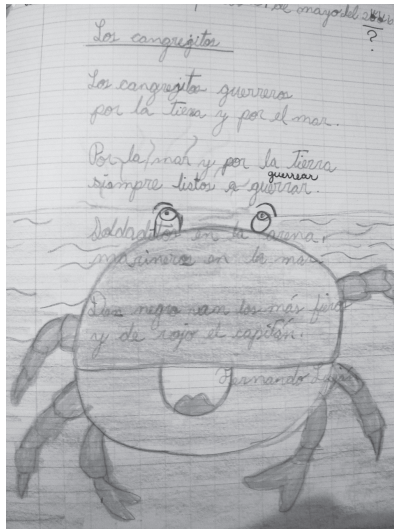 de mayo del
?
Los cangrejitos
Los cangrejitos guerreros
por la tierra y por el mar.
Por la mar y por la tierra
guerrear
siempre listos a guerrar.
Soldaditos en la arena,
marineros en la mar.
De negro van los más
y de rojo el capitán.
Fernando Luján